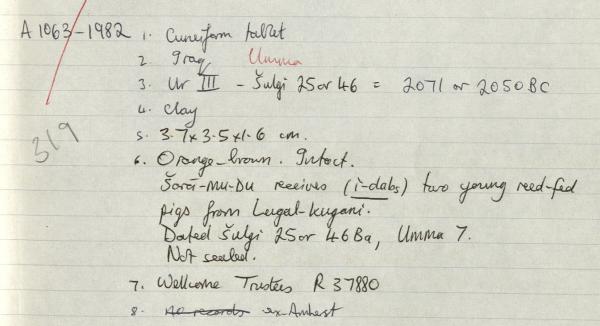 A 1063-1982 1. Cuneiform tablet
2. Iraq Umma
3. Ur III - Šulgi 25 or 46 = 2071 or 2050 BC
4. Clay
319
5. 3.7 x 3.5 x 1.6 cm.
6. Orange-brown. Intact.
Šara-mu-DU receives (i-dab5) two young reed-fed
pigs from Lugal-kugani.
Dated Šulgi 25 or 46 Ba, Umma 7.
Not sealed.
7. Wellcome Trustees R 37880
8. no records ex-Amherst